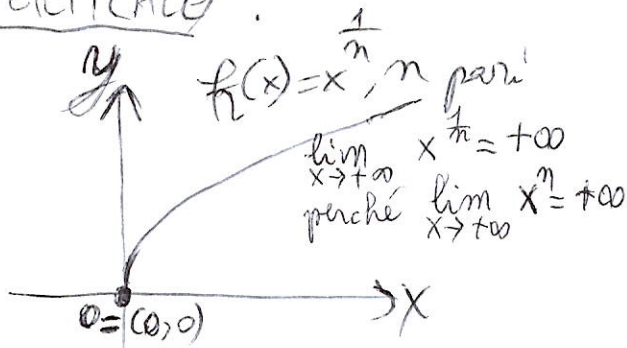 y
h(x) = x^{1/n}, n pari
lim_{x→+∞} x^{1/n} = +∞
perché lim_{x→+∞} x^n = +∞
x
0=(0,0)